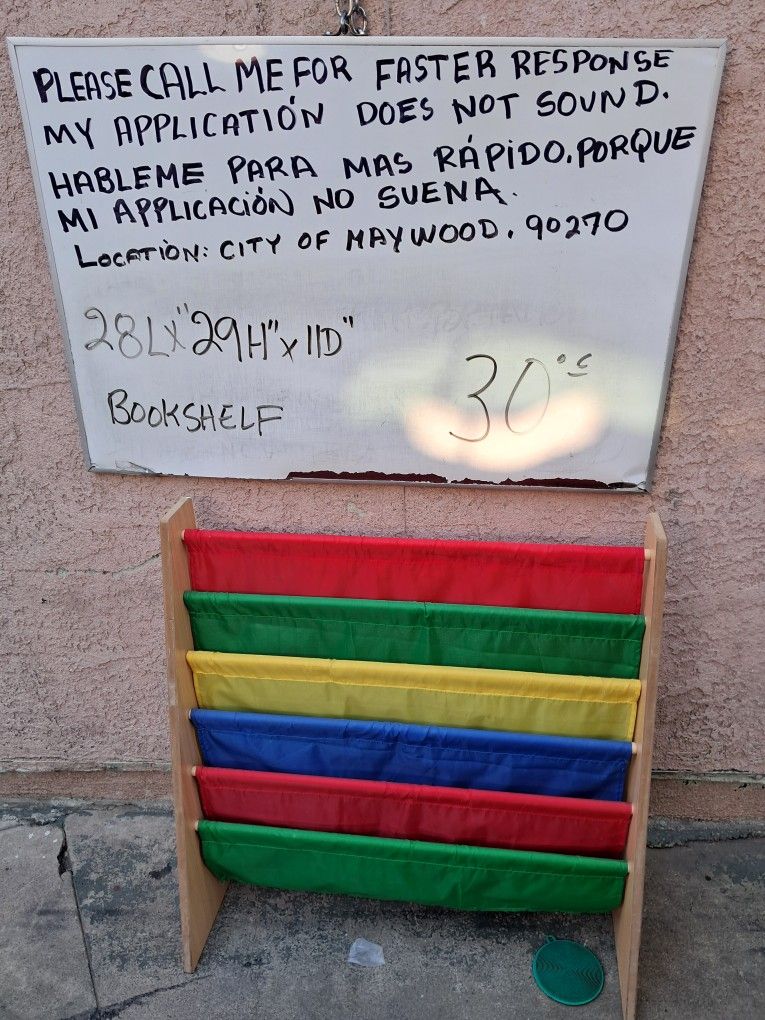 PLEASE CALL ME FOR FASTER RESPONSE
MY APPLICATIÓN DOES NOT SOUND.
HABLEME PARA MAS RÁPIDO. PORQUE
MI APPLICACIÓN NO SUENA.
LOCATIÒN: CITY OF MAYWOOD. 90270
28LX"29H"X11D"
30
BOOKSHELF